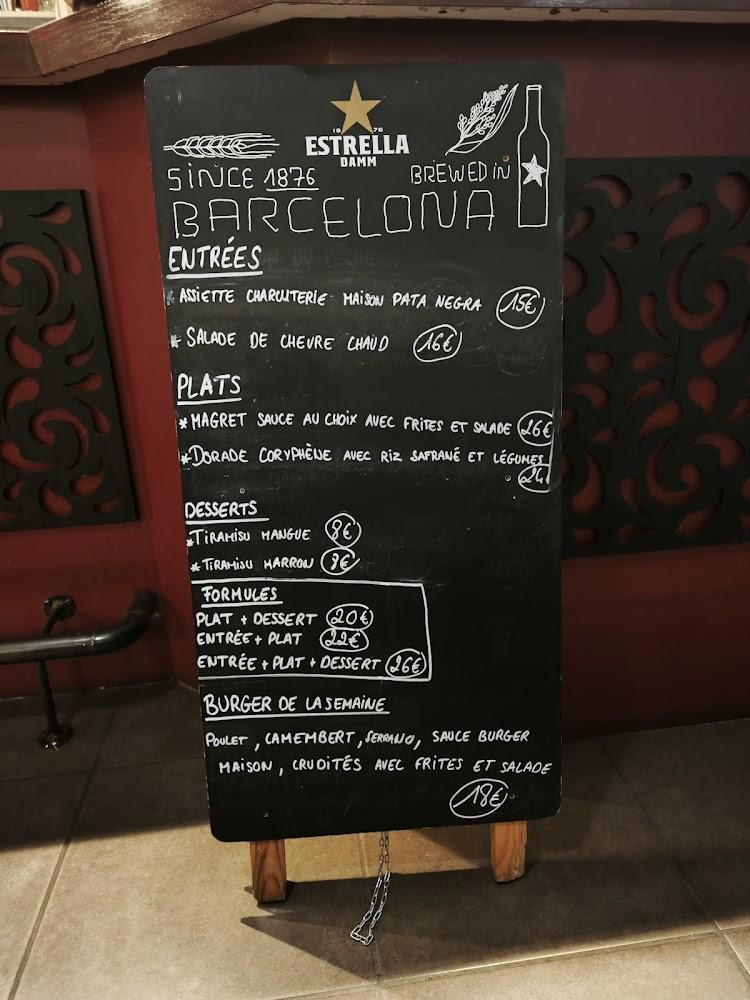 18 76
ESTRELLA
DAMM
SINCE 1876 BREWED IN
BARCELONA
ENTRÉES
* ASSIETTE CHARCUTERIE MAISON PATA NEGRA 15€
* SALADE DE CHEVRE CHAUD 16€
PLATS
* MAGRET SAUCE AU CHOIX AVEC FRITES ET SALADE 26€
* DORADE CORYPHÈNE AVEC RIZ SAFRANÉ ET LÉGUMES
24
DESSERTS
* TIRAMISU MANGUE 8€
* TIRAMISU MARRON 8€
FORMULES
PLAT + DESSERT 20€
ENTRÉE + PLAT 22€
ENTRÉE + PLAT + DESSERT 26€
BURGER DE LA SEMAINE
POULET, CAMEMBERT, SERRANO, SAUCE BURGER
MAISON, CRUDITÉS AVEC FRITES ET SALADE
18€